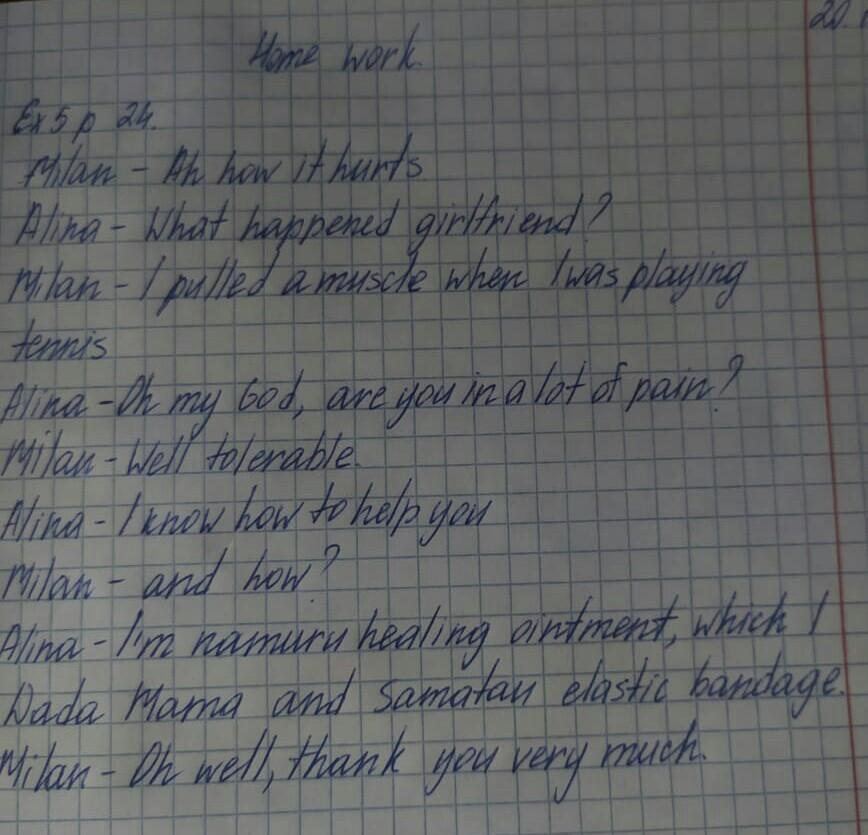 20.
Home work.
Ex 5 p 24.
Milan - Ah how it hurts
Alina - What happened girlfriend?
Milan - I pulled a muscle when I was playing
tennis
Alina - Oh my God, are you in a lot of pain?
Milan - Well tolerable.
Alina - I know how to help you
Milan - and how?
Alina - I'm namuru healing ointment, which I
Dada Mama and Samatau elastic bandage.
Milan - Oh well, thank you very much.